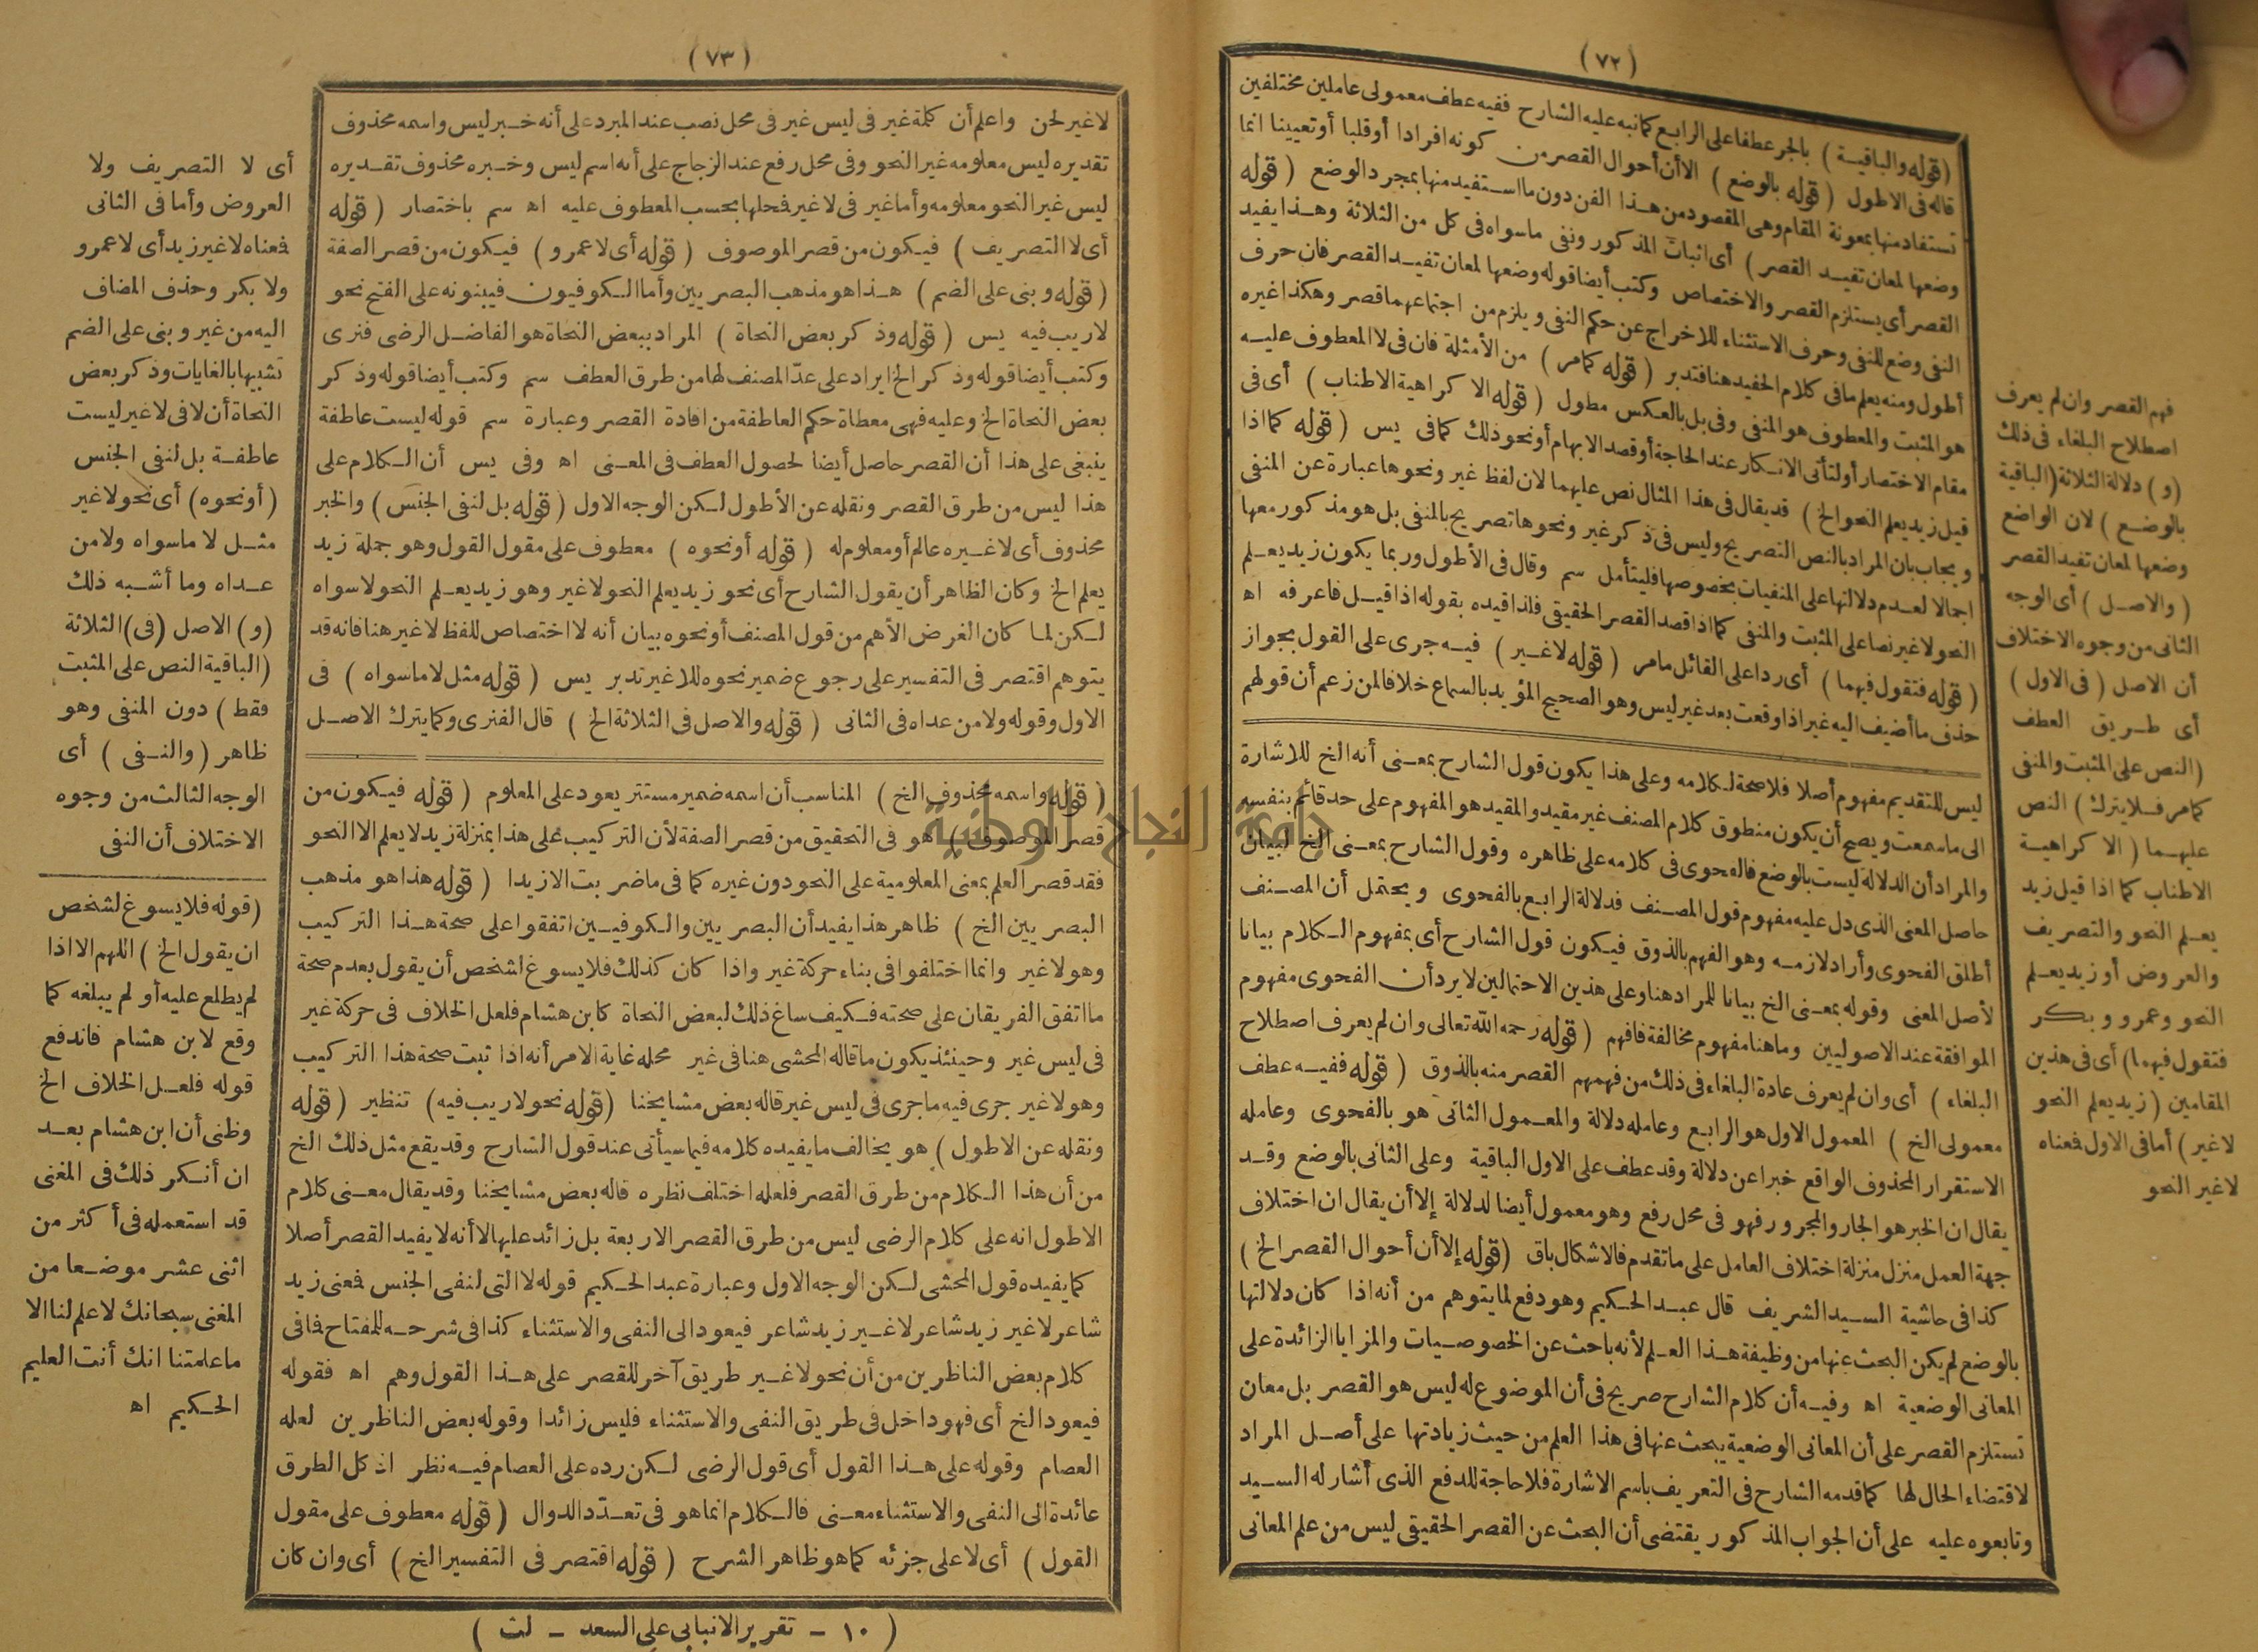 ( ٧٢ )
(قوله والباقيـة ) بالجر عطفا على الرابع كما نبه عليه الشارح ففيه عطف معمولى عاملين مختلفين
قاله فى الاطول ( قوله بالوضع ) الا أن أحوال القصر من كونه افرادا أو قلبا أو تعيينا انما
تستفاد منها بمعونة المقام وهى المقصود من هـذا الفن دون ما اسـتفيد منها بمجرد الوضع ( قوله
وضعها لمعان تفيـد القصر ) أى اثبات المذكور ونفى ماسواه فى كل من الثلاثة وهـذا يفيد
القصر أى يستلزم القصر والاختصاص وكتب أيضا قوله وضعها لمعان تفيـد القصر فان حرف
النفى وضع للنفى وحرف الاستثناء للاخراج عن حكم النفى ويلزم من اجتماعهما قصر وهكذا غيره
أطول ومنه يعلم ما فى كلام الحفيد هنا فتدبر ( قوله كما مر ) من الأمثلة فان فى لا المعطوف عليـه
هو المثبت والمعطوف هو المنفى وفى بل بالعكس مطول ( قوله الا كراهية الاطناب ) أى فى
مقام الاختصار أو لتأتى الانكار عند الحاجة أو قصد الابهام أو نحو ذلك كما فى يس ( قوله كما اذا
قيل زيد يعلم النحو الخ ) قد يقال فى هذا المثال نص عليهما لان لفظ غير ونحوها عبارة عن المنفى
ويجاب بان المراد بالنص التصريح وليس فى ذكر غير ونحوها تصريح بالمنفى بل هو مذكور معها
اجمالا لعـدم دلالتها على المنفيات بخصوصها فليتأمل سم وقال فى الأطول وربما يكون زيد يعـلم
النحو لا غير نصا على المثبت والمنفى كما اذا قصد القصر الحقيقى فلذا قيده بقوله اذا قيـل فاعرفه اه
( قوله فتقول فيهما ) أى ردا على القائل ما مر ( قوله لاغـير ) فيـه جرى على القول بجواز
حذف ما أضيف اليه غير اذا وقعت بعد غير ليس وهو الصحيح المؤيد بالسماع خلافا لمن زعم أن قولهم
ليس للتقديم مفهوم أصلا فلا صحة لكلامه وعلى هذا يكون قول الشارح بمعـنى أنه الخ للاشارة
الى ما سمعت ويصح أن يكون منطوق كلام المصنف غير مقيد والمقيد هو المفهوم على حد قائم بنفسه
والمراد أن الدلالة ليست بالوضع فالفحوى فى كلامه على ظاهره وقول الشارح بمعـنى الخ لبيان
حاصل المعنى الذى دل عليه مفهوم قول المصـنف فدلالة الرابع بالفحوى ويحتمل أن المصـنف
أطلق الفحوى وأراد لازمـه وهو الفهم بالذوق فيـكون قول الشارح أى بمفهوم الـكلام بيانا
لأصل المعنى وقوله بمعـنى الخ بيانا للمراد هنا وعلى هذين الاحتمالين لا يرد أن الفحوى مفهوم
الموافقة عند الاصوليين وما هنا مفهوم مخالفة فافهم ( قوله رحمه الله تعالى وان لم يعرف اصطلاح
البلغاء ) أى وان لم يعرف عادة البلغاء فى ذلك من فهمهم القصر منه بالذوق ( قوله ففيـه عطف
معمولى الخ ) المعمول الاول هو الرابع وعامله دلالة والمعـمول الثانى هو بالفحوى وعامله
الاستقرار المحذوف الواقع خبرا عن دلالة وقد عطف على الاول الباقية وعلى الثانى بالوضع وقـد
يقال ان الخبر هو الجار والمجرور فهو فى محل رفع وهو معمول أيضا لدلالة إلا أن يقال ان اختلاف
جهة العمل منزل منزلة اختلاف العامل على ما تقدم فالاشكال باق ( قوله إلا أن أحوال القصر الخ )
كذا فى حاشية السـيد الشريف قال عبـد الحـكيم وهو دفع لما يتوهم من أنه اذا كان دلالتها
بالوضع لم يكن البحث عنها من وظيفة هـذا العـلم لأنه باحث عن الخصوصـيات والمزايا الزائدة على
المعانى الوضعية اه وفيـه أن كلام الشارح صريح فى أن الموضوع له ليس هو القصر بل معان
تستلزم القصر على أن المعانى الوضعية يبحث عنها فى هذا العلم من حيث زيادتها على أصـل المراد
لاقتضاء الحال لها كما قدمه الشارح فى التعريف باسم الاشارة فلا حاجة للدفع الذى أشار له السـيد
وتابعوه عليه على أن الجواب المذكور يقتضى أن البحث عن القصر الحقيقى ليس من علم المعانى
فهم القصر وان لم يعرف
اصطلاح البلغاء فى ذلك
(و) دلالة الثلاثة (الباقية
بالوضـع ) لان الواضع
وضعها لمعان تفيد القصر
( والاصـل ) أى الوجه
الثانى من وجوه الاختلاف
أن الاصل ( فى الاول )
أى طـريق العطف
(النص على المثبت والمنفى
كما مر فـلا يترك ) النص
عليهـما ( الا كراهيـة
الاطناب كما اذا قيل زيد
يعـلم النحو والتصريف
والعروض أو زيد يعـلم
النحو وعمرو وبكر
فتقول فيهما) أى فى هذين
المقامين ( زيد يعلم النحو
لاغير ) أما فى الاول فمعناه
لاغير النحو
( ٧٣ )
لاغير لحن واعلم أن كلمة غير فى ليس غير فى محل نصب عند المبرد على أنه خـبر ليس واسمه محذوف
تقديره ليس معلومه غير النحو وفى محل رفع عند الزجاج على أنه اسم ليس وخـبره محذوف تقـديره
ليس غير النحو معلومه وأما غير فى لاغير فحلها بحسب المعطوف عليه اه سم باختصار ( قوله
أى لا التصريف ) فيـكون من قصر الموصوف ( قوله أى لا عمرو ) فيـكون من قصر الصفة
( قوله وبنى على الضم ) هـذا هو مذهب البصريين وأما الـكوفيون فيبنونه على الفتح نحو
لاريب فيه يس ( قوله وذكر بعض النحاة ) المراد ببعض النحاة هو الفاضـل الرضى فنرى
وكتب أيضا قوله وذكر الخ ايراد على عدّ المصنف لها من طرق العطف سم وكتب أيضا قوله وذكر
بعض النحاة الخ وعليه فهى معطاة حكم العاطفة من افادة القصر وعبارة سم قوله ليست عاطفة
ينبغى على هذا أن القصر حاصل أيضا لحصول العطف فى المعـنى اه وفى يس أن الـكلام على
هذا ليس من طرق القصر ونقله عن الأطول لـكن الوجه الاول ( قوله بل لنفى الجنس ) والخبر
محذوف أى لاغـيره عالم أو معلوم له ( قوله أو نحوه ) معطوف على مقول القول وهو جملة زيد
يعلم الخ وكان الظاهر أن يقول الشارح أى نحو زيد يعلم النحو لاغير وهو زيد يعـلم النحو لا سواه
لـكن لمـا كان الغرض الأهم من قول المصنف أو نحوه بيان أنه لا اختصاص للفظ لاغير هنا فانه قد
يتوهم اقتصر فى التفسير على رجوع ضمير نحوه للاغير تدبر يس ( قوله مثل لا ما سواه ) فى
الاول وقوله ولا من عداه فى الثانى ( قوله والاصل فى الثلاثة الخ ) قال الفنرى وكما يترك الاصـل
( قوله واسمه محذوف الخ ) المناسب أن اسمه ضمير مستتر يعود على المعلوم ( قوله فيـكون من
قصر الموصوف ) هو فى التحقيق من قصر الصفة لأن التركيب على هذا بمنزلة زيد لا يعلم الا النحو
فقد قصر العلم بمعنى المعلومية على النحو دون غيره كما فى ما ضربت الا زيدا ( قوله هذا هو مذهب
البصريين الخ ) ظاهر هذا يفيد أن البصريين والـكوفيـين اتفقوا على صحة هـذا التركيب
وهو لاغير وانما اختلفوا فى بناء حركة غير واذا كان كذلك فلا يسوغ لشخص أن يقول بعدم صحة
ما اتفق الفريقان على صحته فـكيف ساغ ذلك لبعض النحاة كابن هشام فلعل الخلاف فى حركة غير
فى ليس غير وحينئذ يكون ما قاله المحشى هنا فى غير محله غاية الامر أنه اذا ثبت صحة هذا التركيب
وهو لاغير جرى فيه ما جرى فى ليس غير قاله بعض مشايخنا (قوله نحو لاريب فيه) تنظير ( قوله
ونقله عن الاطول ) هو يخالف ما يفيده كلامه فيما سيأتى عند قول الشارح وقد يقع مثل ذلك الخ
من أن هذا الـكلام من طرق القصر فلعله اختلف نظره قاله بعض مشايخنا وقد يقال معـنى كلام
الاطول انه على كلام الرضى ليس من طرق القصر الاربعة بل زائد عليها الا أنه لا يفيد القصر أصلا
كما يفيده قول المحشى لـكن الوجه الاول وعبارة عبد الحـكيم قوله لا التى لنفى الجنس فمعنى زيد
شاعر لاغير زيد شاعر لاغـير زيد شاعر فيعود الى النفى والاستثناء كذا فى شرحـه للمفتاح فما فى
كلام بعض الناظرين من أن نحو لاغـير طريق آخر للقصر على هـذا القول وهم اه فقوله
فيعود الخ أى فهو داخل فى طريق النفى والاستثناء فليس زائدا وقوله بعض الناظرين لعله
العصام وقوله على هـذا القول أى قول الرضى لـكن رده على العصام فيـه نظر اذ كل الطرق
عائدة الى النفى والاستثناء معـنى فالـكلام انما هو فى تعـدّد الدوال ( قوله معطوف على مقول
القول ) أى لا على جزئه كما هو ظاهر الشرح ( قوله اقتصر فى التفسير الخ ) أى وان كان
أى لا التصريف ولا
العروض وأما فى الثانى
فمعناه لاغير زيد أى لا عمرو
ولا بكر وحذف المضاف
اليه من غير وبنى على الضم
تشبيها بالغايات وذكر بعض
النحاة أن لا فى لاغير ليست
عاطفـة بل لنفى الجنس
(أو نحوه) أى نحو لاغير
مثـل لا ما سواه ولا من
عـداه وما أشـبه ذلك
(و) الاصل (فى) الثلاثة
(الباقية النص على المثبت
فقط ) دون المنفى وهو
ظاهر ( والنـفى ) أى
الوجه الثالث من وجوه
الاختلاف أن النفى
(قوله فلا يسوغ لشخص
ان يقول الخ ) اللهم الا اذا
لم يطلع عليه أو لم يبلغه كما
وقع لابن هشام فاندفع
قوله فلعـل الخلاف الخ
وظنى أن ابن هشام بعـد
ان أنـكر ذلك فى المغنى
قد استعمله فى أكثر من
اثنى عشر موضـعا من
المغنى سبحانك لا علم لنا الا
ما علمتنا انك أنت العليم
الحـكيم اه
( ١٠ - تقرير الانبابى على السعد - لث )
جامعة النجاح الوطنية